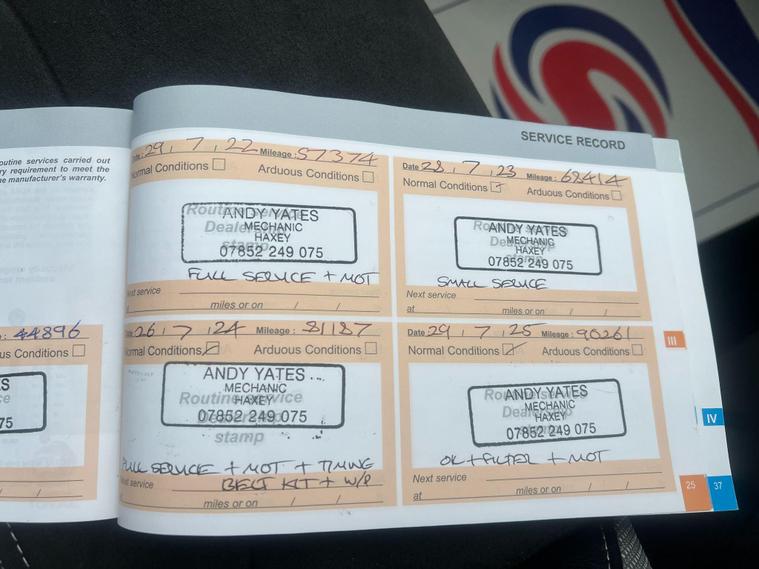 SERVICE RECORD
outine services carried out
ry requirement to meet the
e manufacturer's warranty.
: 44896
us Conditions
75
Date: 29, 7, 22 Mileage: 57374
Normal Conditions Arduous Conditions
Routine service
Dealership
stamp
ANDY YATES
MECHANIC
HAXEY
07852 249 075
FULL SERVICE + MOT
Next service
at miles or on / /
Date 28, 7, 23 Mileage: 68414
Normal Conditions Arduous Conditions
ANDY YATES
MECHANIC
HAXEY
07852 249 075
SMALL SERVICE
Next service
at miles or on / /
26, 7, 24 Mileage: 81187
Normal Conditions Arduous Conditions
Routine service
Dealership
stamp
ANDY YATES
MECHANIC
HAXEY
07852 249 075
FULL SERVICE + MOT + TIMING
BELT KIT + W/P
Next service
miles or on / /
Date 29, 7, 25 Mileage: 90261
Normal Conditions Arduous Conditions
ANDY YATES
MECHANIC
HAXEY
07852 249 075
OIL + FILTER + MOT
Next service
at miles or on / /
III
IV
25 37